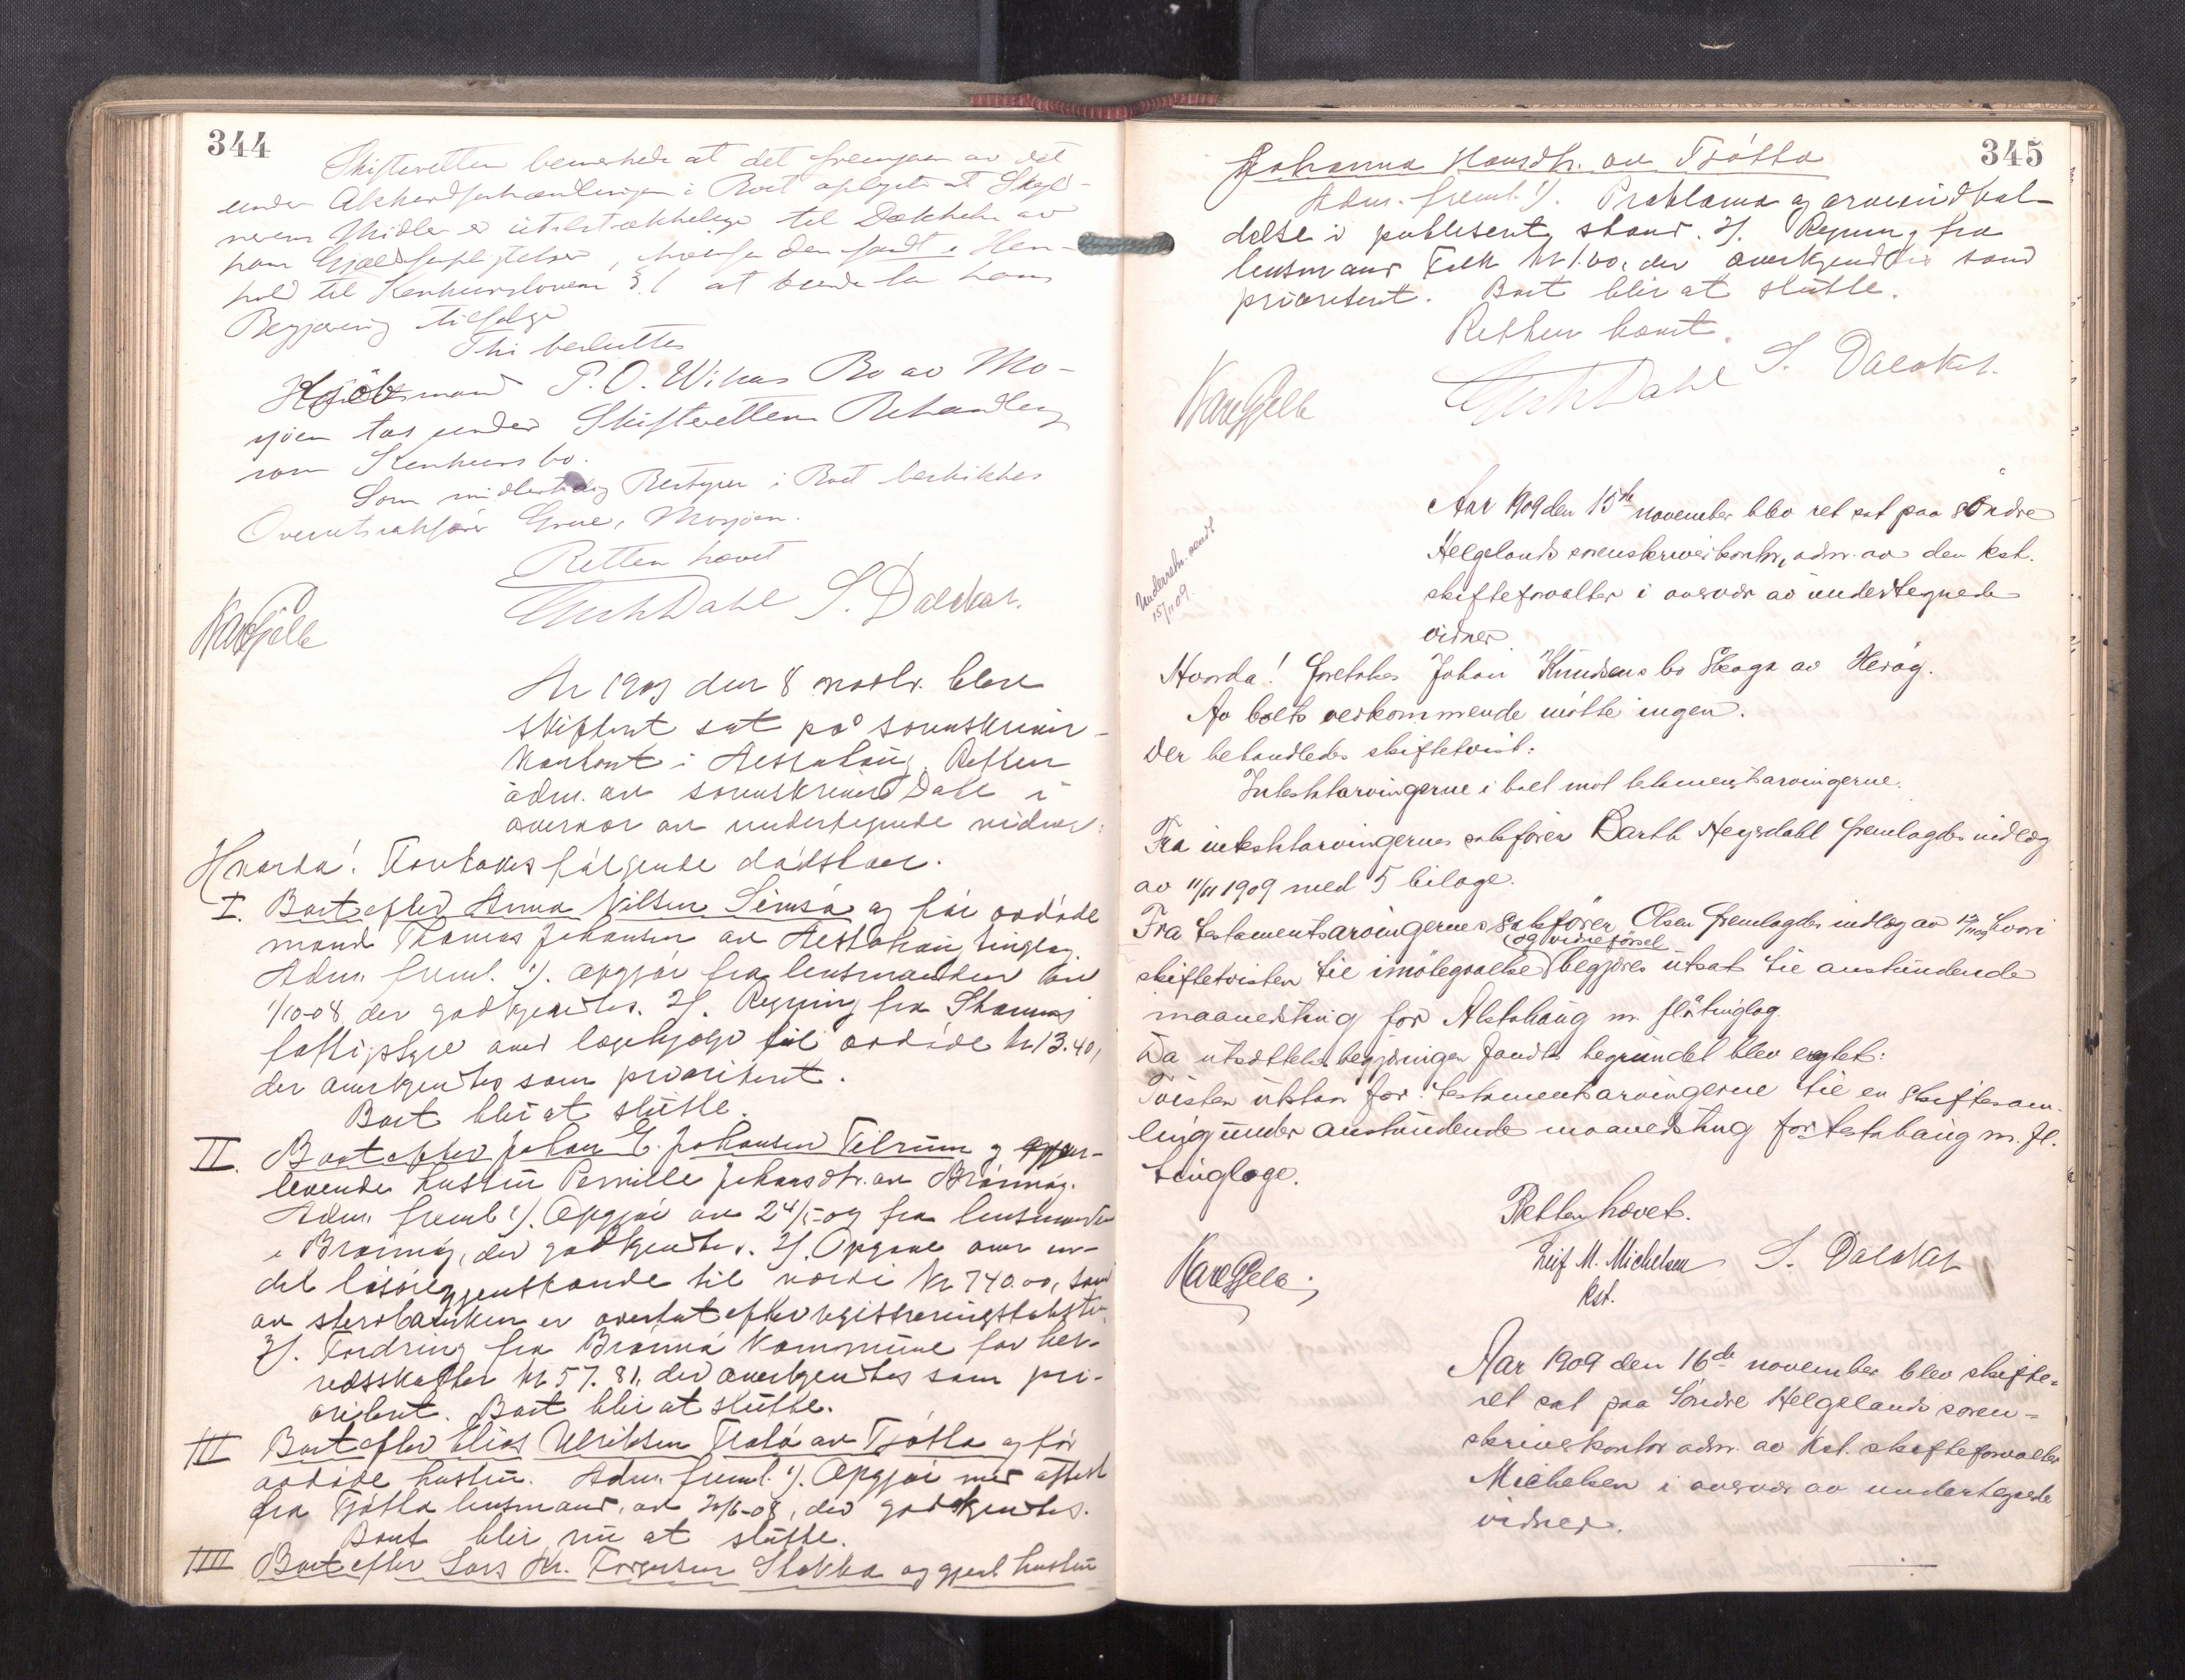 344
Skifteretten bemerkede at det fremgaar av det
under Akkordforhandlingen i Boet oplyste at Skyld-
nerens Midler er utilstrækkelige til Dækkelse av
hans Gjældsforpligtelser, hvorfor den fandt i Hen-
hold til Konkursloven § 1 at burde ta hans
Begjæring tilfølge
Thi besluttes
Kjøbmand P. O. Wikas Bo av Mo-
sjøen tas under Skifterettens Behandling
som Konkursbo.
Som midlertidig Bestyrer i Boet beskikkes
Overretssakfører Grue, Mosjøen.
Retten hævet
Dahl S. Dalaker.
Kare Gjelle
År 1909 den 8 novbr. blev
skifteret sat på sorenskriver-
kontoret i Alstahaug. Retten
adm. av sorenskriver Dahl i
overvær av undertegnede vidner:
Hvorda! Foretokes følgende dødsboer.
I. Boet efter Anna Nilsen Simsø og før avdøde
mand Thomas Johansen av Alstahaug tinglag.
Adm. freml. 1/. Opgjør fra lensmanden av
1/10-08, der godkjentes. 2/. Regning fra Stamnes
fattigstyre over lægehjælp til avdøde kr 13.40,
der anerkjentes som prioritert.
Boet blir at slutte.
II. Boet efter Johan E. Johansen Tilrum og gjen-
levende hustru Pernille Johansdtr. av Brønnøy.
Adm. freml. 1/. Opgjør av 24/5-09 fra lensmanden
i Brønnøy, der godkjentes. 2/. Opgave over en-
del løsøregjenstande til værdi kr 740.00, som
av sterboenken er overtat efter registreringstaksten.
3/. Fordring fra Brønnø kommune for her-
redsskatter kr 57.81, der anerkjentes som pri-
oritert. Boet blir at slutte.
III Boet efter Elias Ulriksen Flatø av Tjøtta og før
avdøde hustru. Adm. freml. 1/. Opgjør med attest
fra Tjøtta lensmand, av 20/6-08, der godkjentes.
Boet blir nu at slutte.
IIII Boet efter Lars Kr. Torgersen Stokka og gjenl. hustru
345
Johanna Hansdtr. av Tjøtta
Adm. freml. 1/. Proklama og arveindkal-
delse i publisert stand. 2/. Regning fra
lensmand Falk kr 1.00, der anerkjendtes som
prioritert. Boet blir at slutte.
Retten hævet.
Dahl S. Dalaker.
Kare Gjelle
Underretn. sendt
15/11 09.
Aar 1909 den 15de november blev ret sat paa Søndre
Helgelands sorenskriverkontor, adm. av den kst.
skifteforvalter i overvær av undertegnede
vidner
Hvorda! Foretokes Johan Knudsens bo Skaga av Herøy.
Av boets vedkommende møtte ingen.
Der behandledes skiftetvist:
Intestatarvingerne i boet mot testamentsarvingerne.
Fra intestatarvingernes sakfører Barth Heyerdahl fremlagdes indlæg
av 11/11 1909 med 5 bilage.
Fra testamentsarvingernes sakfører Olsen fremlagdes indlæg av 12/11 09 hvori
og vidneførsel
skiftetvisten til imøtegaaelse begjæres utsat til anstundende
maanedsting for Alstahaug m. fl. tinglag.
Da utsættelsesbegjæringen fandtes begrundet blev avgjort:
Tvisten utstaar for testamentsarvingerne til en skiftesam-
ling under anstundende maanedsting for Alstahaug m. fl.
tinglage.
Retten hævet.
Leif M. Michelsen S. Dalaker
kst.
Kare Gjelle
Aar 1909 den 16de november blev skifte-
ret sat paa Søndre Helgelands soren-
skriverkontor adm. av kst. skifteforvalter
Michelsen i overvær av undertegnede
vidner.